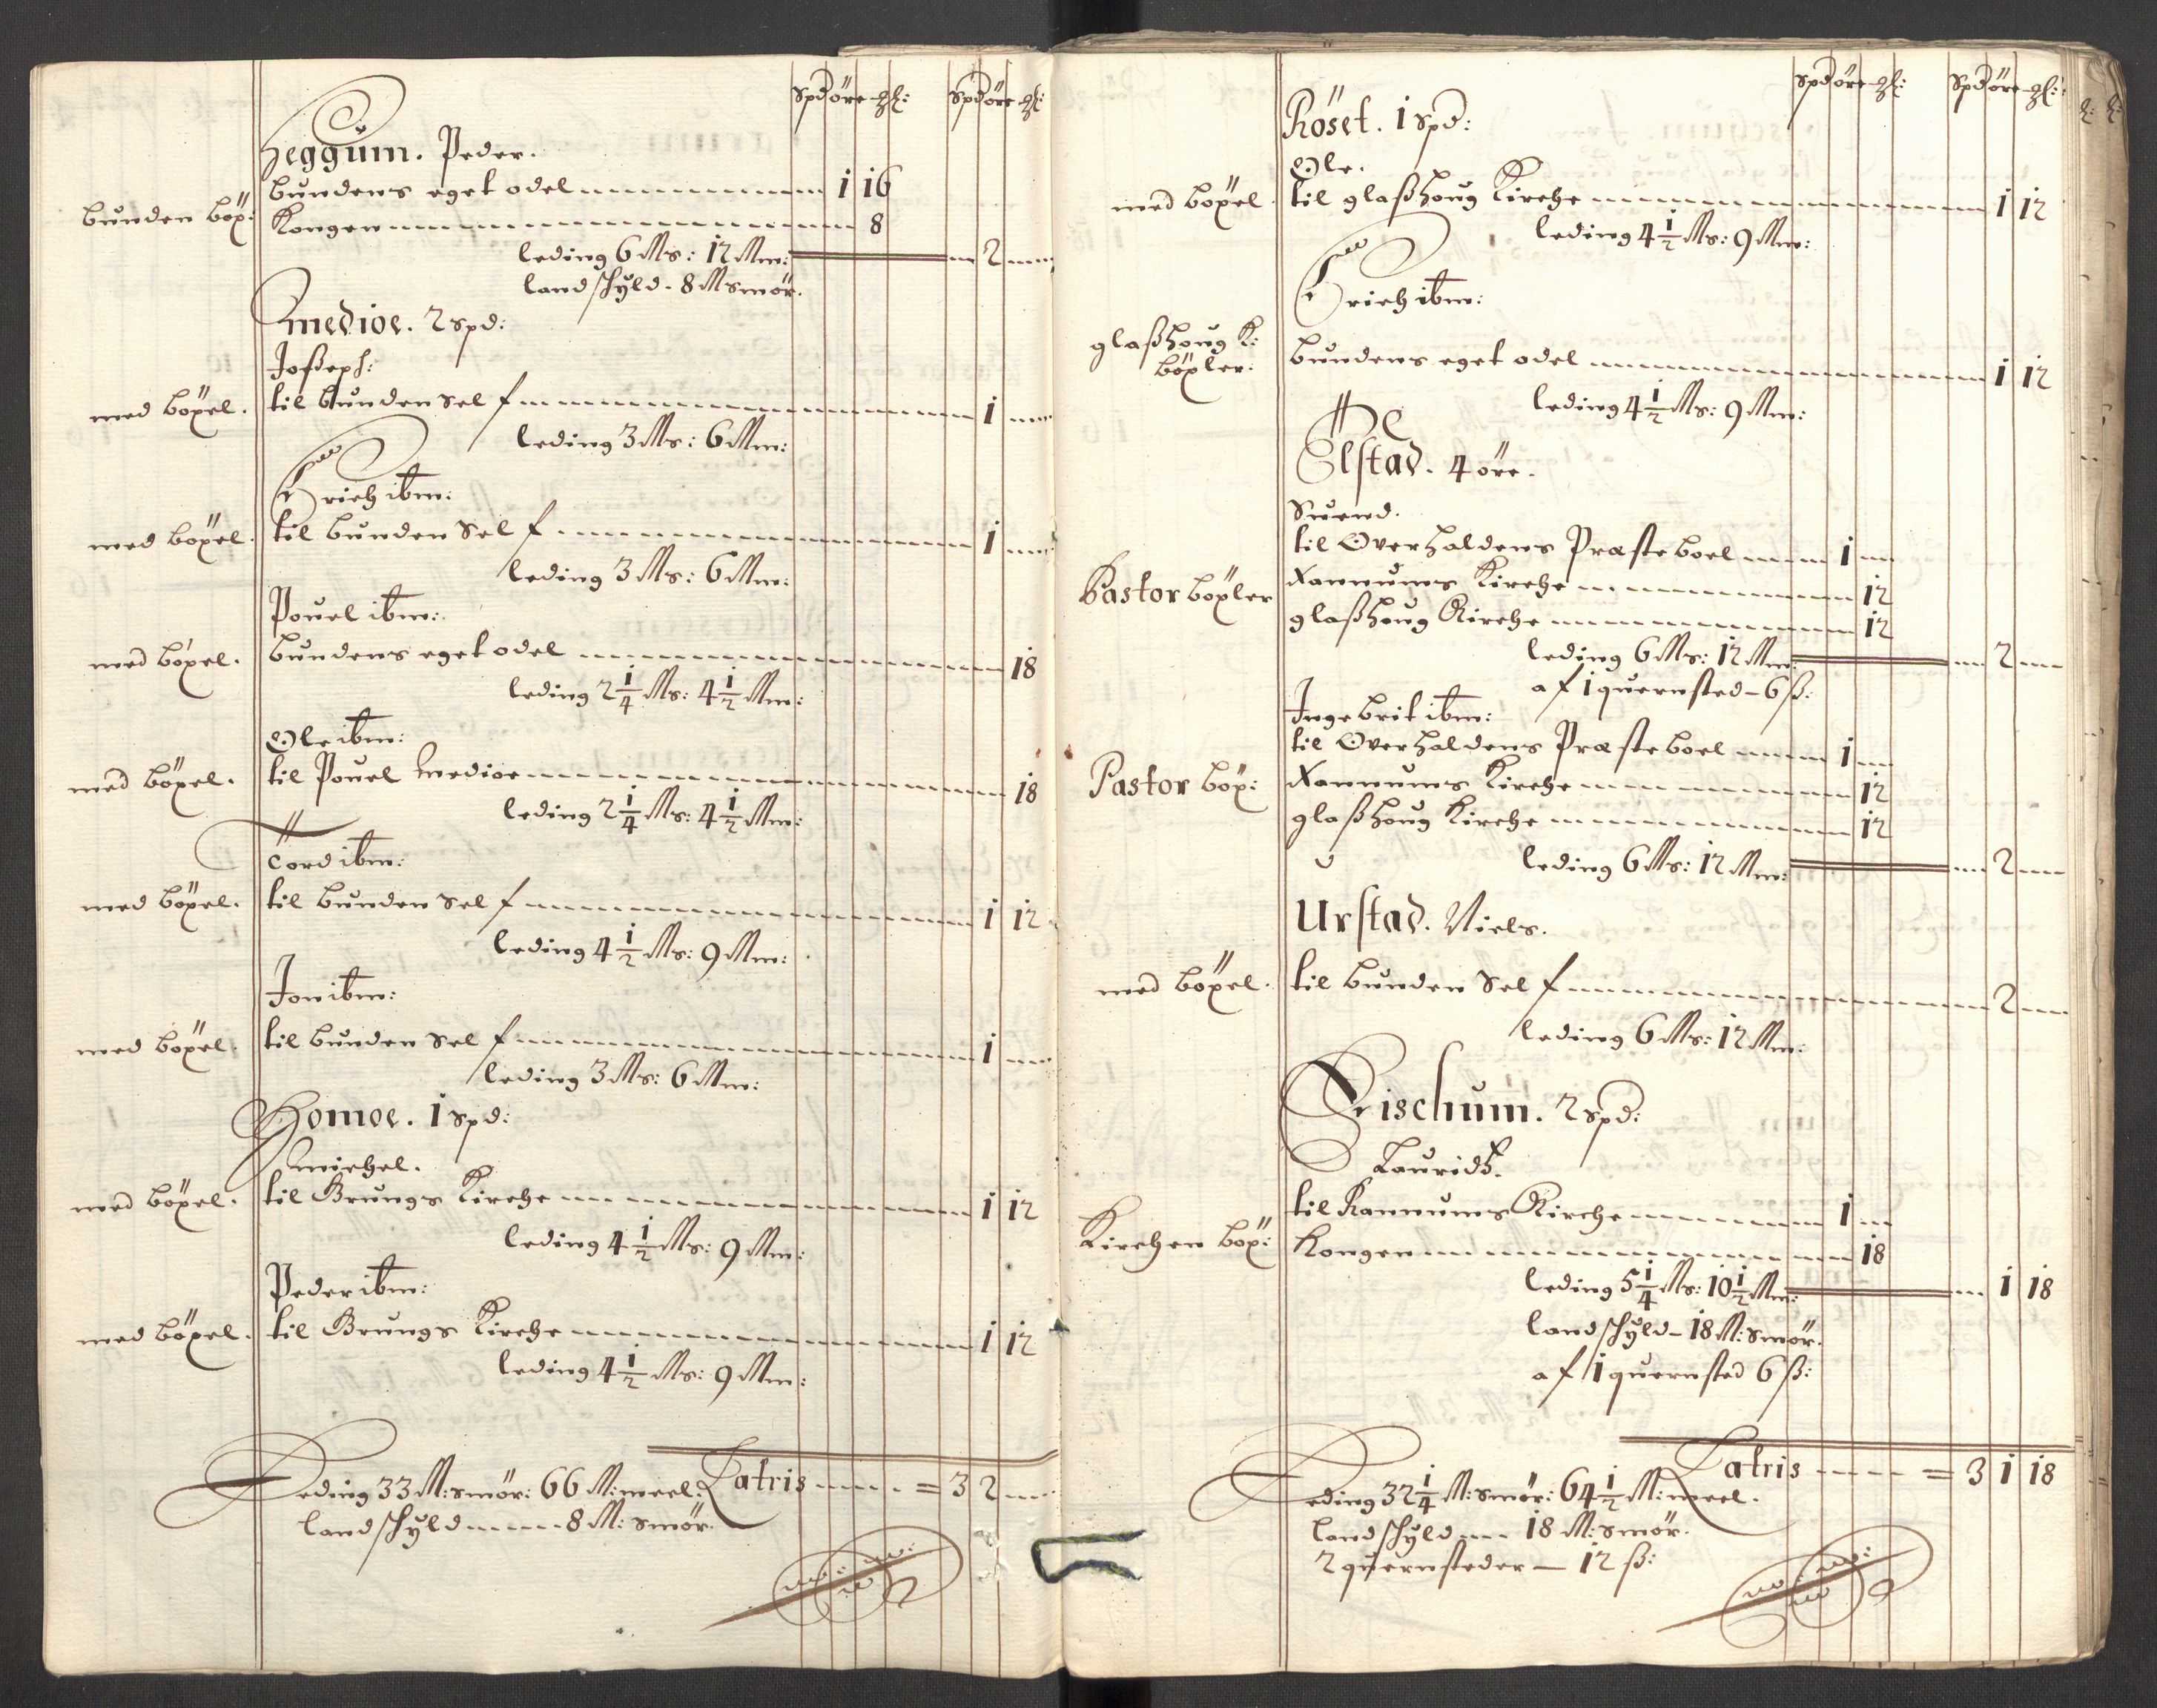 Spd öre gl: Spd öre gl:
Heggum. Peder.
bunden böx: bundens eget odel 1 16
Kongen 8
leding 6 Ms: 12 Mm: 2
landschyld. 8 M smör.
medioe. 2 spd:
Josseph:
med böxel. til bunden self 1
leding 3 Ms: 6 Mm:
Erich ibm:
med böxel. til bunden self 1
leding 3 Ms: 6 Mm:
Pouel ibm:
med böxel. bundens eget odel 18
leding 2 1/4 Ms: 4 1/2 Mm:
Ole ibm:
med böxel. til Pouel medioe 18
leding 2 1/4 Ms: 4 1/2 Mm:
Tord ibm:
med böxel. til bunden self 1 12
leding 4 1/2 Ms: 9 Mm:
Jon ibm:
med böxel. til bunden self 1
leding 3 Ms: 6 Mm:
Homoe. 1 spd:
michel.
med böxel. til Brungs Kirche 1 12
leding 4 1/2 Ms: 9 Mm:
Peder ibm:
med böxel. til Brungs Kirche 1 12
leding 4 1/2 Ms: 9 Mm:
Leding 33 M: smör: 66 M: meel. Latris = 3 2
landschyld 8 M: smör.
Spd öre gl: Spd öre gl:
Röset. 1 spd:
Ole.
med böxel. til glasshoug Kirche 1 12
leding 4 1/2 Ms: 9 Mm:
Erich ibm:
glasshoug K:
böxler. bundens eget odel 1 12
leding 4 1/2 Ms: 9 Mm:
Elstad. 4 öre.
Suend.
til Overhaldens Præsteboel 1
Pastor böxler Rannums Kirche 12
glasshoug Kirche 12
leding 6 Ms: 12 Mm: 2
af 1 quernsted - 6 ß:
Ingebrit ibm:
til Overhaldens Præsteboel 1
Pastor böx: Rannums Kirche 12
glasshoug Kirche 12
leding 6 Ms: 12 Mm: 2
Urstad. Niels.
med böxel. til bunden self 2
leding 6 Ms: 12 Mm:
Rischum. 2 spd:
Lauridß.
til Rannums Kirche 1
Kirchen böx: Kongen 18
leding 5 1/4 Ms: 10 1/2 Mm: 1 18
landschyld - 18 M: smör.
af 1 quernsted 6 ß:
Latris = 3 1 18
Leding 32 1/4 M: smör: 64 1/2 M: meel.
landschyld 18 M: smör.
2 quernsteder - 12 ß: